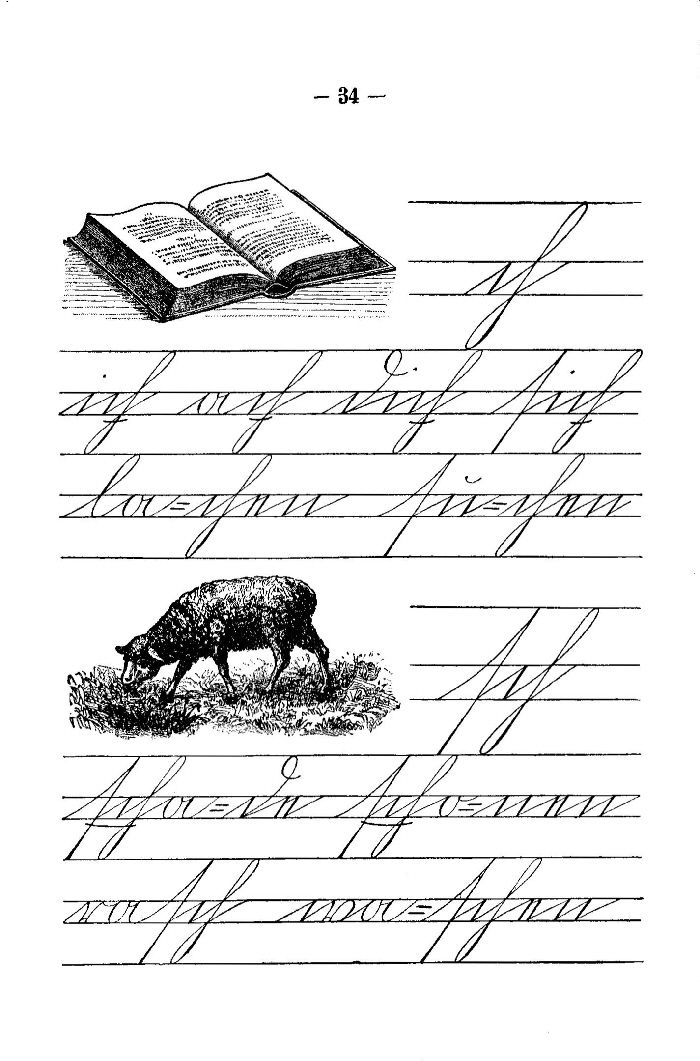 — 34 —
ch
ich ach dich sich
la=chen su=chen
sch
scha=de scho=nen
rasch wa=schen